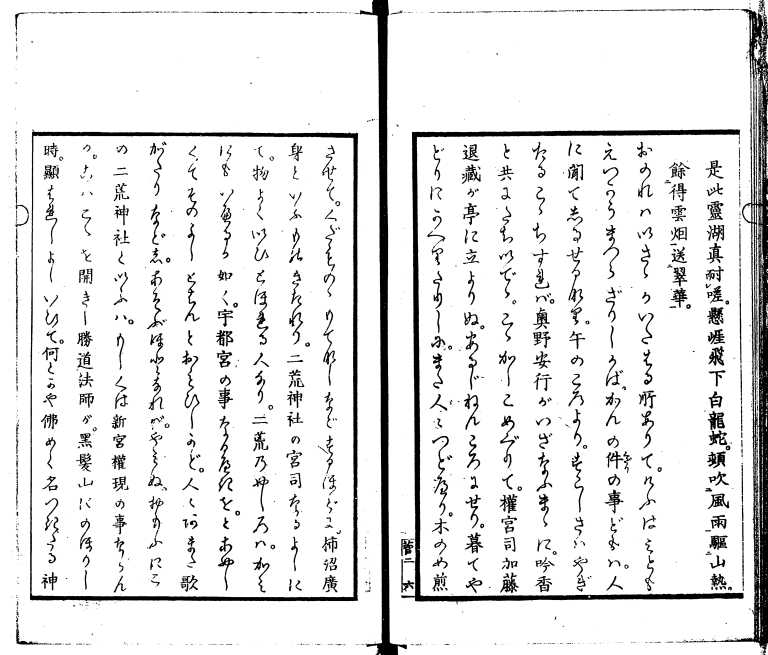 是此靈湖真耐嗟。懸崖飛下白龍蛇。頭吹風雨驅山熱。
餘得雲烟送翠華。
おのれハいさゝかいたはる所ありて。けふはミとも
えつかうまつらざりしかば。かんの件の事どもハ。人
に聞て志るせるなり。午のころより。すこしさハやぎ
たるこゝちすれバ。奥野安行がいざなふまゝに。吟香
と共にたち出で。こゝかしこめぐりて。權宮司加藤
退藏が亭に立よりぬ。あるじねんころにせり。暮てや
どりにかへりたりしに。また人々つどへり。木のめ煎
させて。くだものゝもてなしなどするほどに。柿沼廣
身といふものきたれり。二荒神社の宮司なるよしに
て。物よくいひとほれる人なり。二荒乃やしろハ。
にもいへる如く。宇都宮の事なるべきを。とあやし
くてそのよしとはんとおもひしかど。人々あまた歌
がたりなど志。あそぶほどなれバ。やミぬ。
の二荒神社といふハ。もしくは新宮權現の事ならん
か。こハこゝを開きし勝道法師が。黑髪山にのほりし
時。顯はれしよしいひて。何とかや佛めく名つけたる神